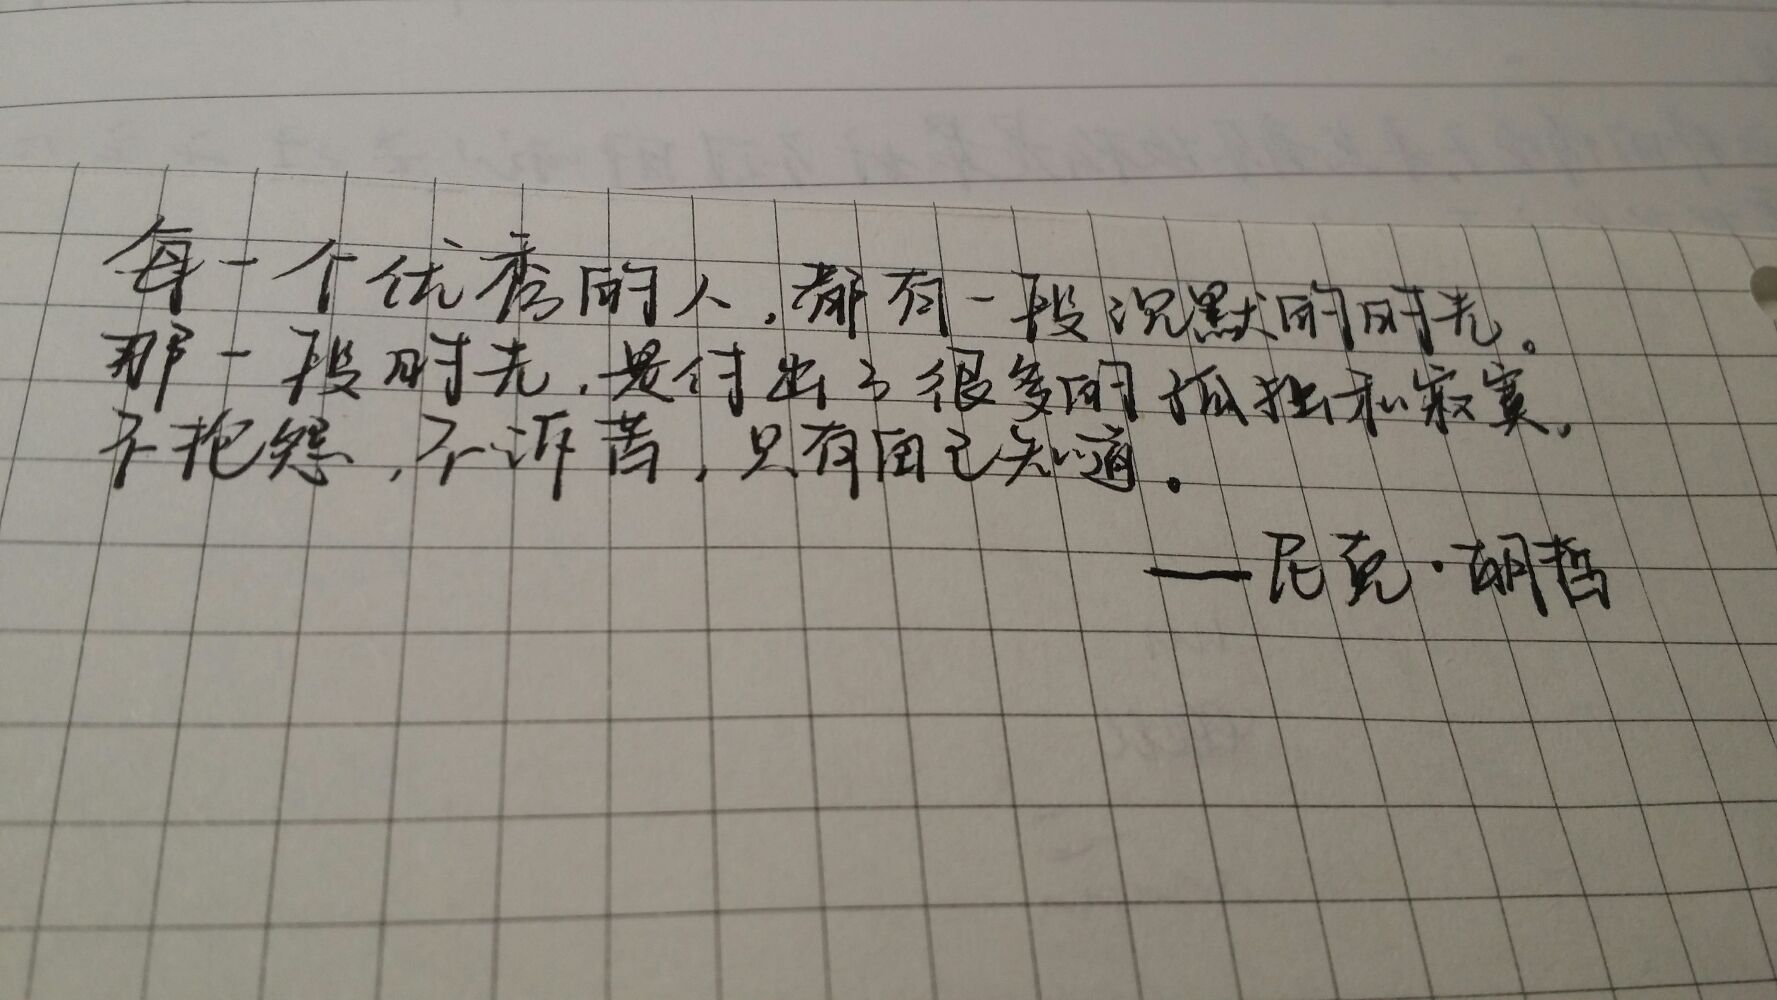 每一个优秀的人,都有一段沉默的时光。
那一段时光,是付出了很多的孤独和寂寞,
不抱怨,不诉苦,只有自己知道。
——尼克·胡哲